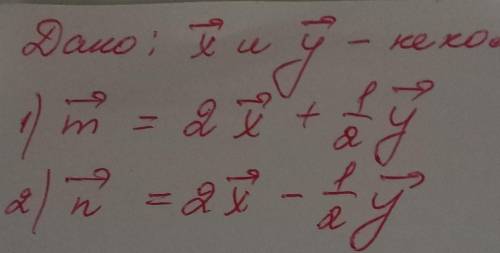 Дано: x⃗ и y⃗ - неко
1) m⃗ = 2x⃗ + 1/2 y⃗
2) n⃗ = 2x⃗ - 1/2 y⃗